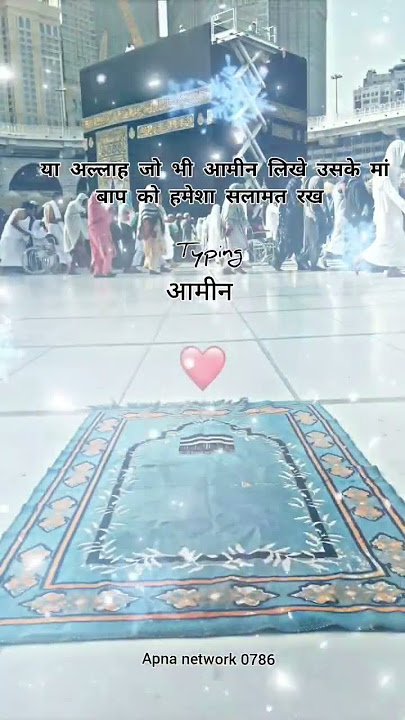 या अल्लाह जो भी आमीन लिखे उसके मां
बाप को हमेशा सलामत रख
Typing
आमीन
Apna network 0786